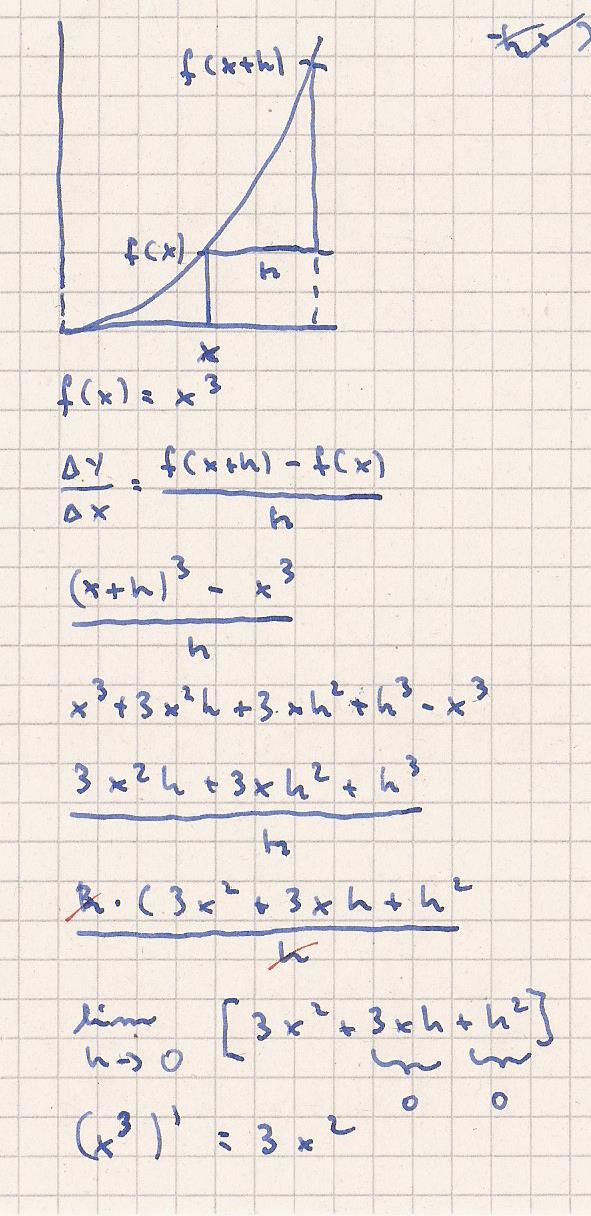 f(x+h)
f(x)
h
x
f(x) = x³
Δy/Δx = (f(x+h) - f(x))/h
((x+h)³ - x³)/h
x³+3x²h+3·xh²+h³-x³
(3x²h+3xh²+h³)/h
h·(3x²+3xh+h²/h
lim h→0 [3x²+3xh+h²]
0 0
(x³)' = 3x²